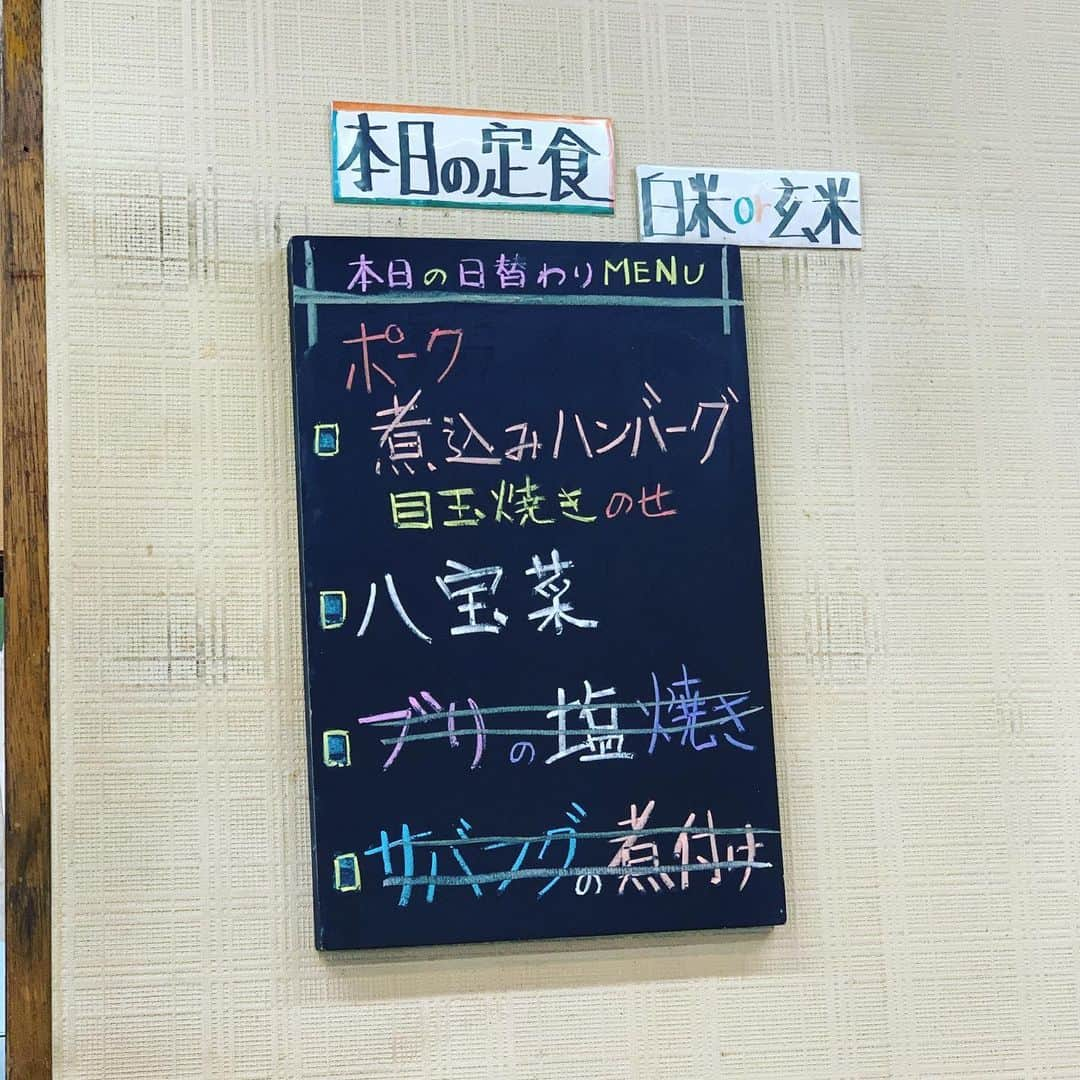 本日の定食
白米or玄米
本日の日替わりMENU
ポーク
煮込みハンバーグ
目玉焼きのせ
八宝菜
ブリの塩焼き
サバングの煮付け